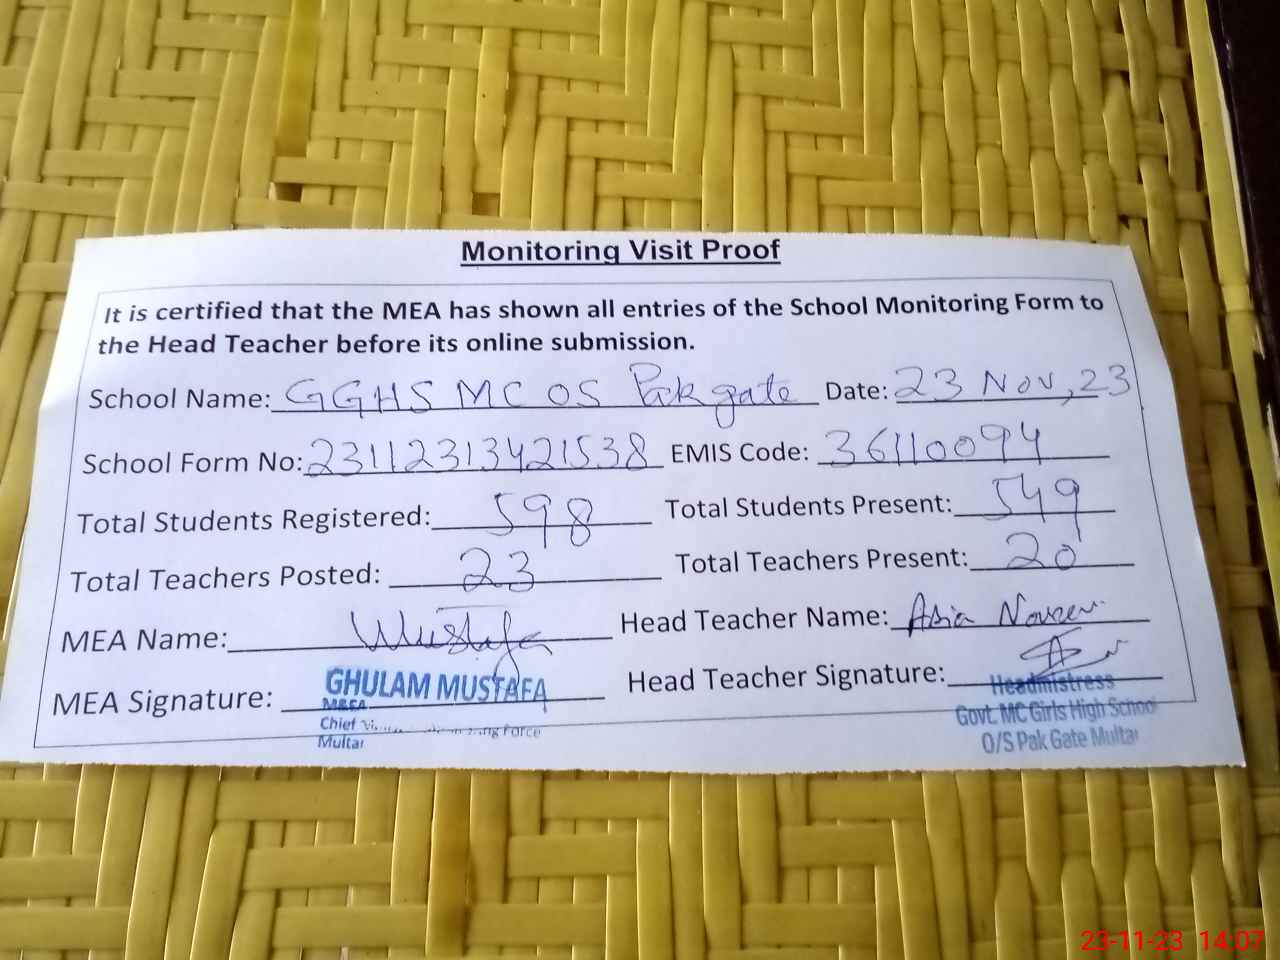 Monitoring Visit Proof
It is certified that the MEA has shown all entries of the School Monitoring Form to
the Head Teacher before its online submission.
School Name: GGHS MC OS Pak gate Date: 23 Nov, 23
School Form No: 23112313421538 EMIS Code: 36110094
Total Students Registered: 598 Total Students Present: 549
Total Teachers Posted: 23 Total Teachers Present: 20
MEA Name: Mustafa Head Teacher Name: Asia
MEA Signature: Head Teacher Signature:
GHULAM MUSTAFA
Chief Force
Multan
Headmistress
Govt. MC Girls High School
O/S Pak Gate Multan
23-11-23 14:07